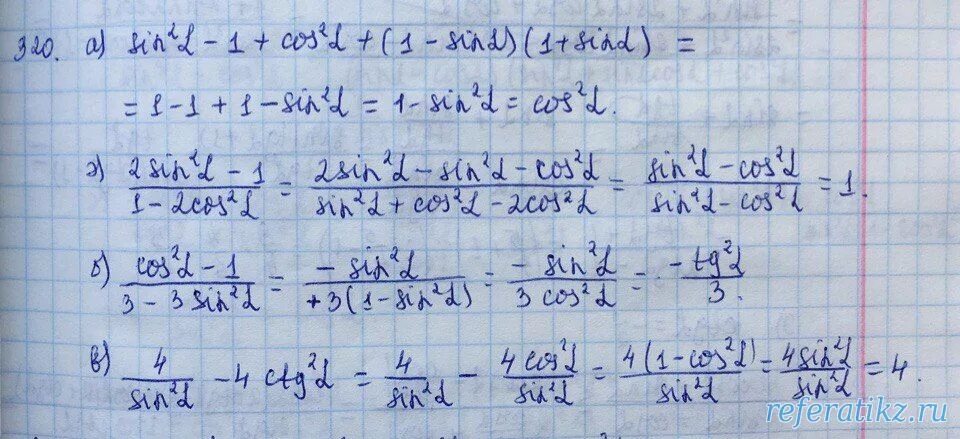 320. а) sin²α - 1 + cos²α + (1 - sinα)(1 + sinα) =
= 1 - 1 + 1 - sin²α = 1 - sin²α = cos²α.
г) (2sin²α - 1)/(1 - 2cos²α) = (2sin²α - sin²α - cos²α)/(sin²α + cos²α - 2cos²α) = (sin²α - cos²α)/(sin²α - cos²α) = 1.
б) (cos²α - 1)/(3 - 3sin²α) = (-sin²α)/(+3(1 - sin²α)) = (-sin²α)/(3cos²α) = (-tg²α)/3.
в) 4/sin²α - 4ctg²α = 4/sin²α - 4cos²α/sin²α = 4(1 - cos²α)/sin²α = 4sin²α/sin²α = 4.
referatikz.ru